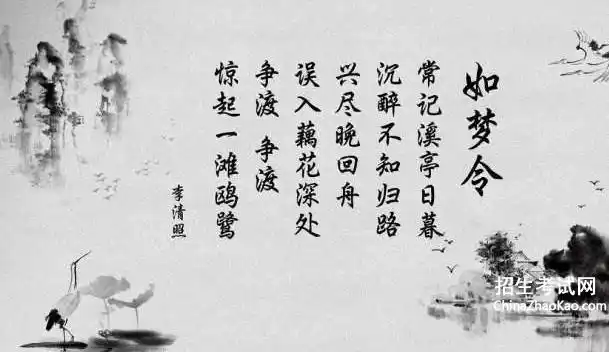 如梦令
常记溪亭日暮
沉醉不知归路
兴尽晚回舟
误入藕花深处
争渡 争渡
惊起一滩鸥鹭
李清照
招生考试网
ChinaZhaoKao.com